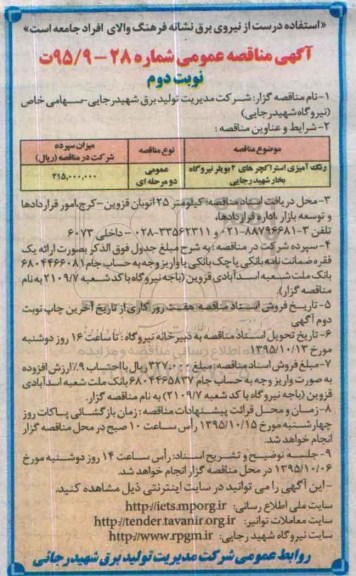 «استفاده درست از نیروی برق نشانه فرهنگ والای افراد جامعه است»
آگهی مناقصه عمومی شماره ۲۸-۹۵/۹ت
نوبت دوم
۱-نام مناقصه گزار: شرکت مدیریت تولید برق شهیدرجایی-سهامی خاص
(نیروگاه شهیدرجایی)
۲-شرایط و عناوین مناقصه :
موضوع مناقصه نوع مناقصه میزان سپرده شرکت در مناقصه (ریال)
رنگ آمیزی استراکچر های ۲ بویلر نیروگاه بخار شهید رجایی عمومی دو مرحله ای ۳۱۵,۰۰۰,۰۰۰
۳-محل دریافت اسناد مناقصه: کیلومتر ۲۵ اتوبان قزوین-کرج،امور قراردادها
و توسعه بازار ،اداره قراردادها،
تلفن ۳-۸۸۷۹۶۶۸۱-۰۲۱ و ۳۳۵۶۲۳۱۱-۰۲۸ داخلی ۶۰۷۳
۴-سپرده شرکت در مناقصه : به شرح مبلغ جدول فوق الذکر بصورت ارائه یک
فقره ضمانت نامه بانکی یا چک بانکی یا واریز وجه به حساب جام ۶۸۰۴۴۶۶۰۸۱
بانک ملت شعبه اسدآبادی قزوین (باجه نیروگاه با کد شعبه ۲۱۰۹/۷ به نام
مناقصه گزار).
۵- تاریخ فروش اسناد مناقصه: هفت روز کاری از تاریخ آخرین چاپ نوبت
دوم آگهی
۶- تاریخ تحویل اسناد مناقصه به دبیرخانه نیروگاه : تا ساعت ۱۶ روز دوشنبه
مورخ ۱۳۹۵/۱۰/۱۳
۷-مبلغ فروش اسناد مناقصه: مبلغ ۳۲۷,۰۰۰ ریال با احتساب ۹٪ ارزش افزوده
به صورت واریز وجه به حساب جام ۶۸۰۴۴۶۵۸۳۷ بانک ملت شعبه اسدآبادی
قزوین (باجه نیروگاه با کد شعبه ۲۱۰۹/۷) به نام مناقصه گزار.
۸-زمان و محل قرائت پیشنهادات مناقصه : زمان بازگشائی پاکات روز
چهارشنبه مورخ ۱۳۹۵/۱۰/۱۵ رأس ساعت ۱۰ صبح در محل مناقصه گزار
انجام خواهد شد.
۹- جلسه توضیح و تشریح اسناد: رأس ساعت ۱۴ روز دوشنبه مورخ
۱۳۹۵/۱۰/۰۶ در محل مناقصه گزار انجام خواهد شد.
-این آگهی را می توانید در سایت اینترنتی ذیل مشاهده کنید.
سایت ملی اطلاع رسانی: http://iets.mporg.ir
سایت معاملات توانیر: http://tender.tavanir.org.ir
سایت نیروگاه شهید رجایی: http://www.rpgm.ir
روابط عمومی شرکت مدیریت تولید برق شهید رجائی